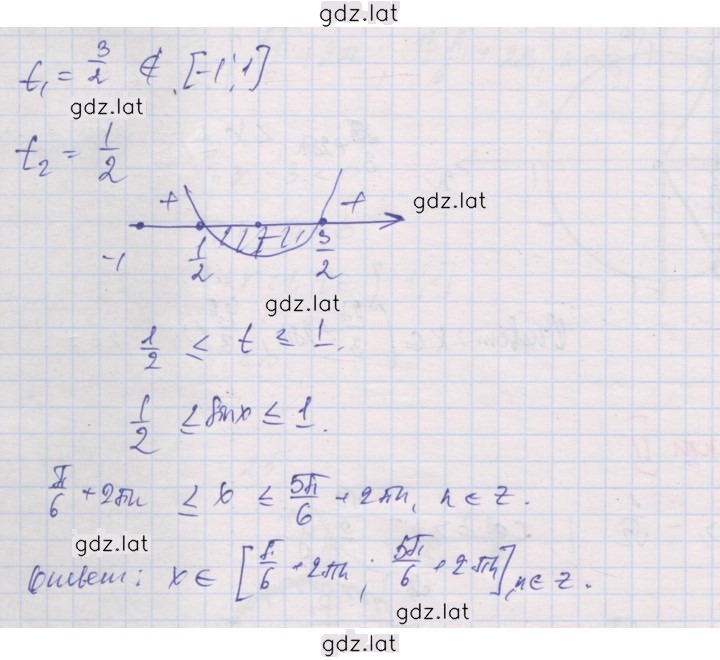 gdz.lat
t₁ = 3/2 ∉ [-1; 1]
gdz.lat
t₂ = 1/2
+ + gdz.lat
-1 1/2 1 3/2
gdz.lat
1/2 ≤ t ≤ 1.
1/2 ≤ sin x ≤ 1.
π/6 + 2πn ≤ x ≤ 5π/6 + 2πn, n ∈ Z.
gdz.lat
Ответ: x ∈ [π/6 + 2πn; 5π/6 + 2πn], n ∈ Z.
gdz.lat
gdz.lat